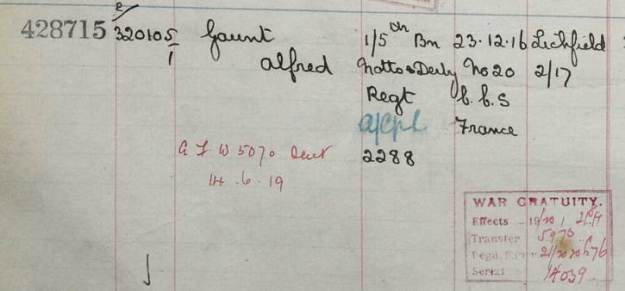 E/
428715 320105/1 Gaunt 1/5th Bn 23.12.16 Lichfield
Alfred Notts & Derby No 20 2/17
Regt C.C.S
A/Cpl France
A F W 5070 Sent 2288
14.6.19
WAR GRATUITY.
Effects 19/20
Transfer 5976
Regd. 21/20
Serial 14039